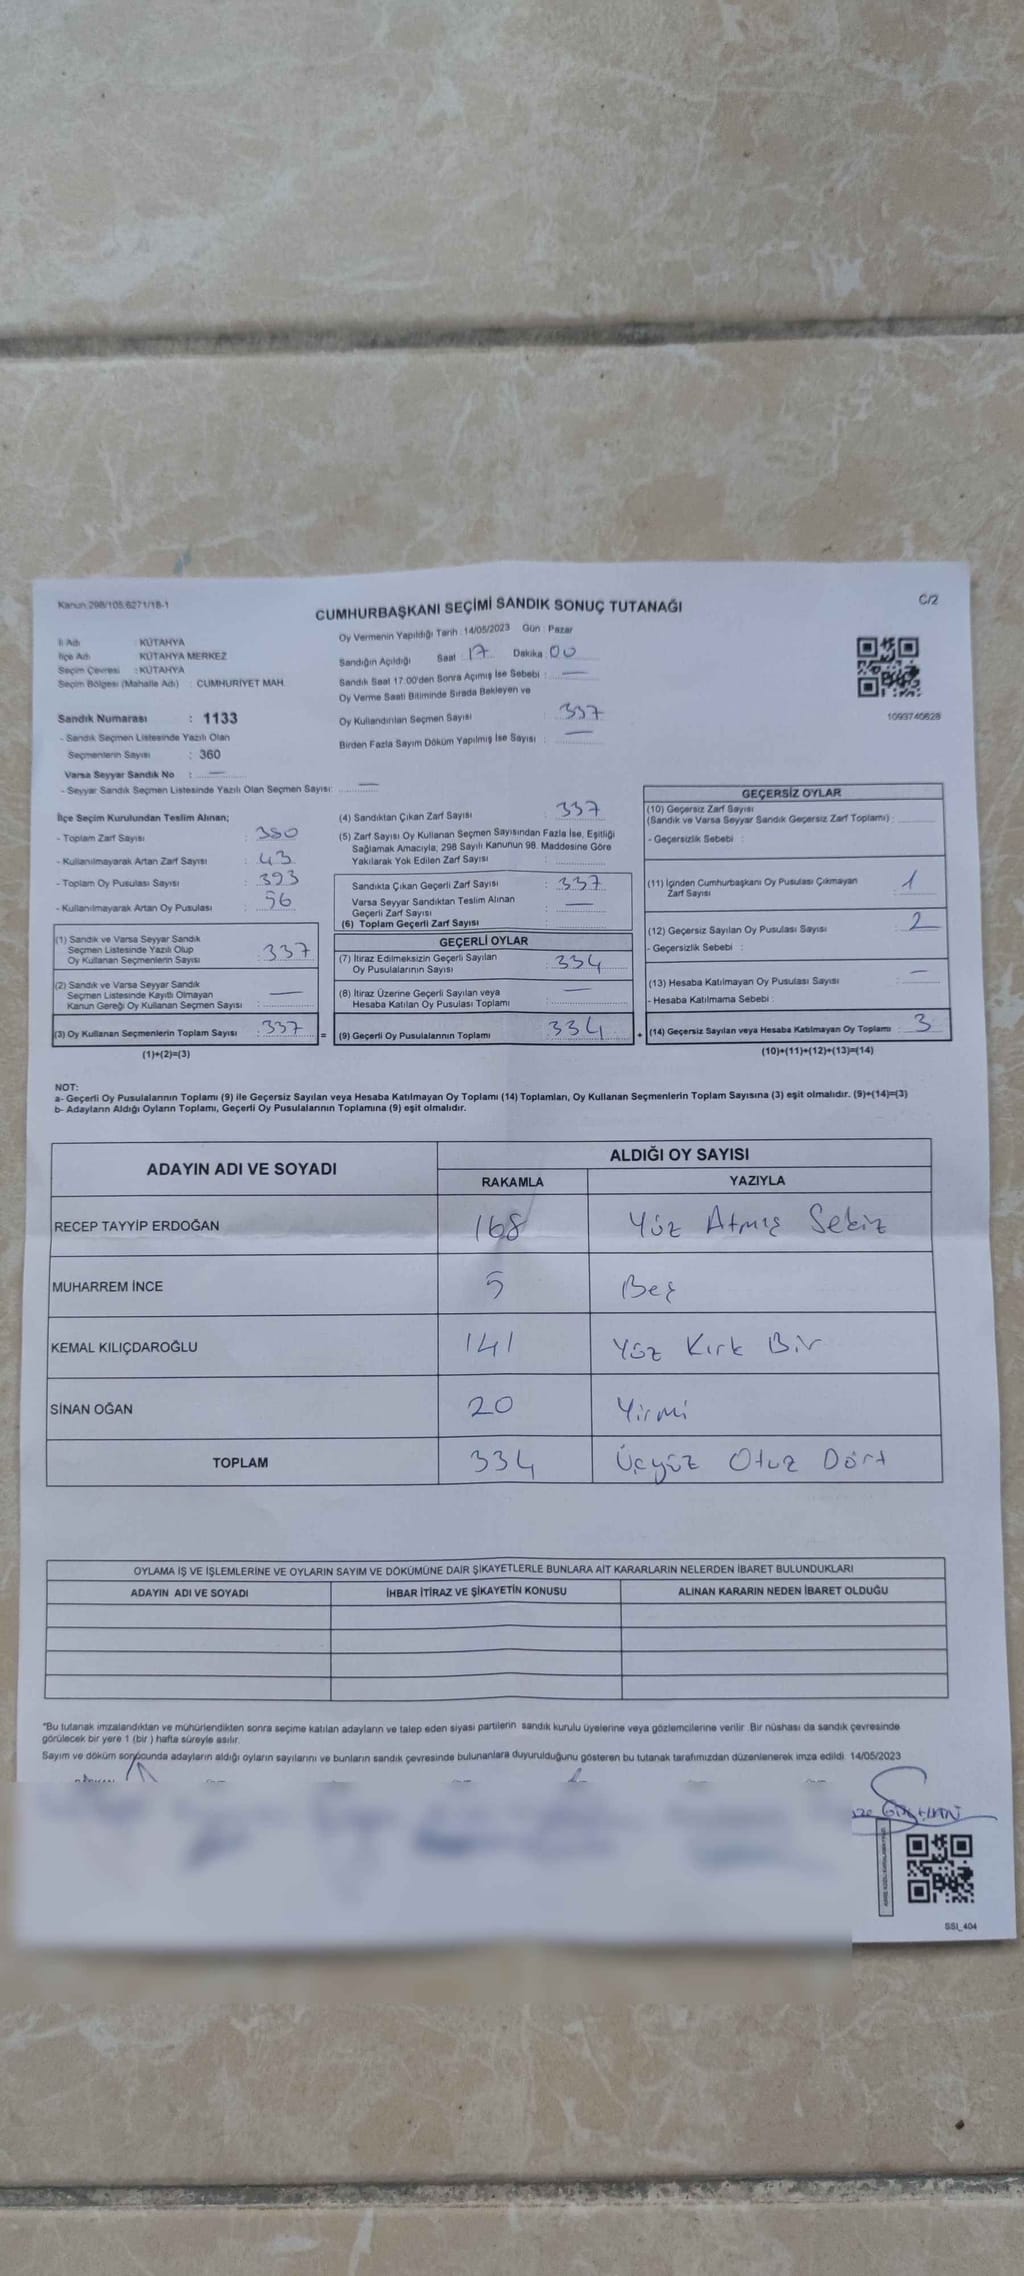 Kanun:298/105,6271/18-1
C/2
CUMHURBAŞKANI SEÇİMİ SANDIK SONUÇ TUTANAĞI
İl Adı : KÜTAHYA
İlçe Adı : KÜTAHYA MERKEZ
Seçim Çevresi : KÜTAHYA
Seçim Bölgesi (Mahalle Adı) : CUMHURİYET MAH.
Sandık Numarası : 1133
- Sandık Seçmen Listesinde Yazılı Olan
Seçmenlerin Sayısı : 360
Varsa Seyyar Sandık No : —
- Seyyar Sandık Seçmen Listesinde Yazılı Olan Seçmen Sayısı: —
Oy Vermenin Yapıldığı Tarih : 14/05/2023 Gün : Pazar
Sandığın Açıldığı Saat 17 Dakika 00
Sandık Saat 17:00'den Sonra Açımış İse Sebebi : —
Oy Verme Saati Bitiminde Sırada Bekleyen ve
Oy Kullandırılan Seçmen Sayısı : 337
Birden Fazla Sayım Döküm Yapılmış İse Sayısı : —
1093740628
İlçe Seçim Kurulundan Teslim Alınan;
- Toplam Zarf Sayısı : 380
- Kullanılmayarak Artan Zarf Sayısı : 43
- Toplam Oy Pusulası Sayısı : 393
- Kullanılmayarak Artan Oy Pusulası : 56
(1) Sandık ve Varsa Seyyar Sandık
Seçmen Listesinde Yazılı Olup
Oy Kullanan Seçmenlerin Sayısı : 337
(2) Sandık ve Varsa Seyyar Sandık
Seçmen Listesinde Kayıtlı Olmayan
Kanun Gereği Oy Kullanan Seçmen Sayısı : —
(3) Oy Kullanan Seçmenlerin Toplam Sayısı : 337 =
(1)+(2)=(3)
(4) Sandıktan Çıkan Zarf Sayısı : 337
(5) Zarf Sayısı Oy Kullanan Seçmen Sayısından Fazla İse, Eşitliği
Sağlamak Amacıyla, 298 Sayılı Kanunun 98. Maddesine Göre
Yakılarak Yok Edilen Zarf Sayısı :
Sandıkta Çıkan Geçerli Zarf Sayısı : 337
Varsa Seyyar Sandıktan Teslim Alınan
Geçerli Zarf Sayısı : —
(6) Toplam Geçerli Zarf Sayısı
GEÇERLİ OYLAR
(7) İtiraz Edilmeksizin Geçerli Sayılan
Oy Pusulalarının Sayısı : 334
(8) İtiraz Üzerine Geçerli Sayılan veya
Hesaba Katılan Oy Pusulası Toplamı : —
(9) Geçerli Oy Pusulalarının Toplamı 334 +
GEÇERSİZ OYLAR
(10) Geçersiz Zarf Sayısı
(Sandık ve Varsa Seyyar Sandık Geçersiz Zarf Toplamı) :
- Geçersizlik Sebebi :
(11) İçinden Cumhurbaşkanı Oy Pusulası Çıkmayan
Zarf Sayısı : 1
(12) Geçersiz Sayılan Oy Pusulası Sayısı : 2
- Geçersizlik Sebebi :
(13) Hesaba Katılmayan Oy Pusulası Sayısı : —
- Hesaba Katılmama Sebebi :
(14) Geçersiz Sayılan veya Hesaba Katılmayan Oy Toplamı : 3
(10)+(11)+(12)+(13)=(14)
NOT:
a- Geçerli Oy Pusulalarının Toplamı (9) ile Geçersiz Sayılan veya Hesaba Katılmayan Oy Toplamı (14) Toplamları, Oy Kullanan Seçmenlerin Toplam Sayısına (3) eşit olmalıdır. (9)+(14)=(3)
b- Adayların Aldığı Oyların Toplamı, Geçerli Oy Pusulalarının Toplamına (9) eşit olmalıdır.
ADAYIN ADI VE SOYADI
ALDIĞI OY SAYISI
RAKAMLA YAZIYLA
RECEP TAYYİP ERDOĞAN 168 Yüz Atmış Sekiz
MUHARREM İNCE 5 Beş
KEMAL KILIÇDAROĞLU 141 Yüz Kırk Bir
SİNAN OĞAN 20 Yirmi
TOPLAM 334 Üçyüz Otuz Dört
OYLAMA İŞ VE İŞLEMLERİNE VE OYLARIN SAYIM VE DÖKÜMÜNE DAİR ŞİKAYETLERLE BUNLARA AİT KARARLARIN NELERDEN İBARET BULUNDUKLARI
ADAYIN ADI VE SOYADI İHBAR İTİRAZ VE ŞİKAYETİN KONUSU ALINAN KARARIN NEDEN İBARET OLDUĞU
*Bu tutanak imzalandıktan ve mühürlendikten sonra seçime katılan adayların ve talep eden siyasi partilerin sandık kurulu üyelerine veya gözlemcilerine verilir. Bir nüshası da sandık çevresinde
görülecek bir yere 1 (bir ) hafta süreyle asılır.
Sayım ve döküm sonucunda adayların aldığı oyların sayılarını ve bunların sandık çevresinde bulunanlara duyurulduğunu gösteren bu tutanak tarafımızdan düzenlenerek imza edildi. 14/05/2023
SSI_404